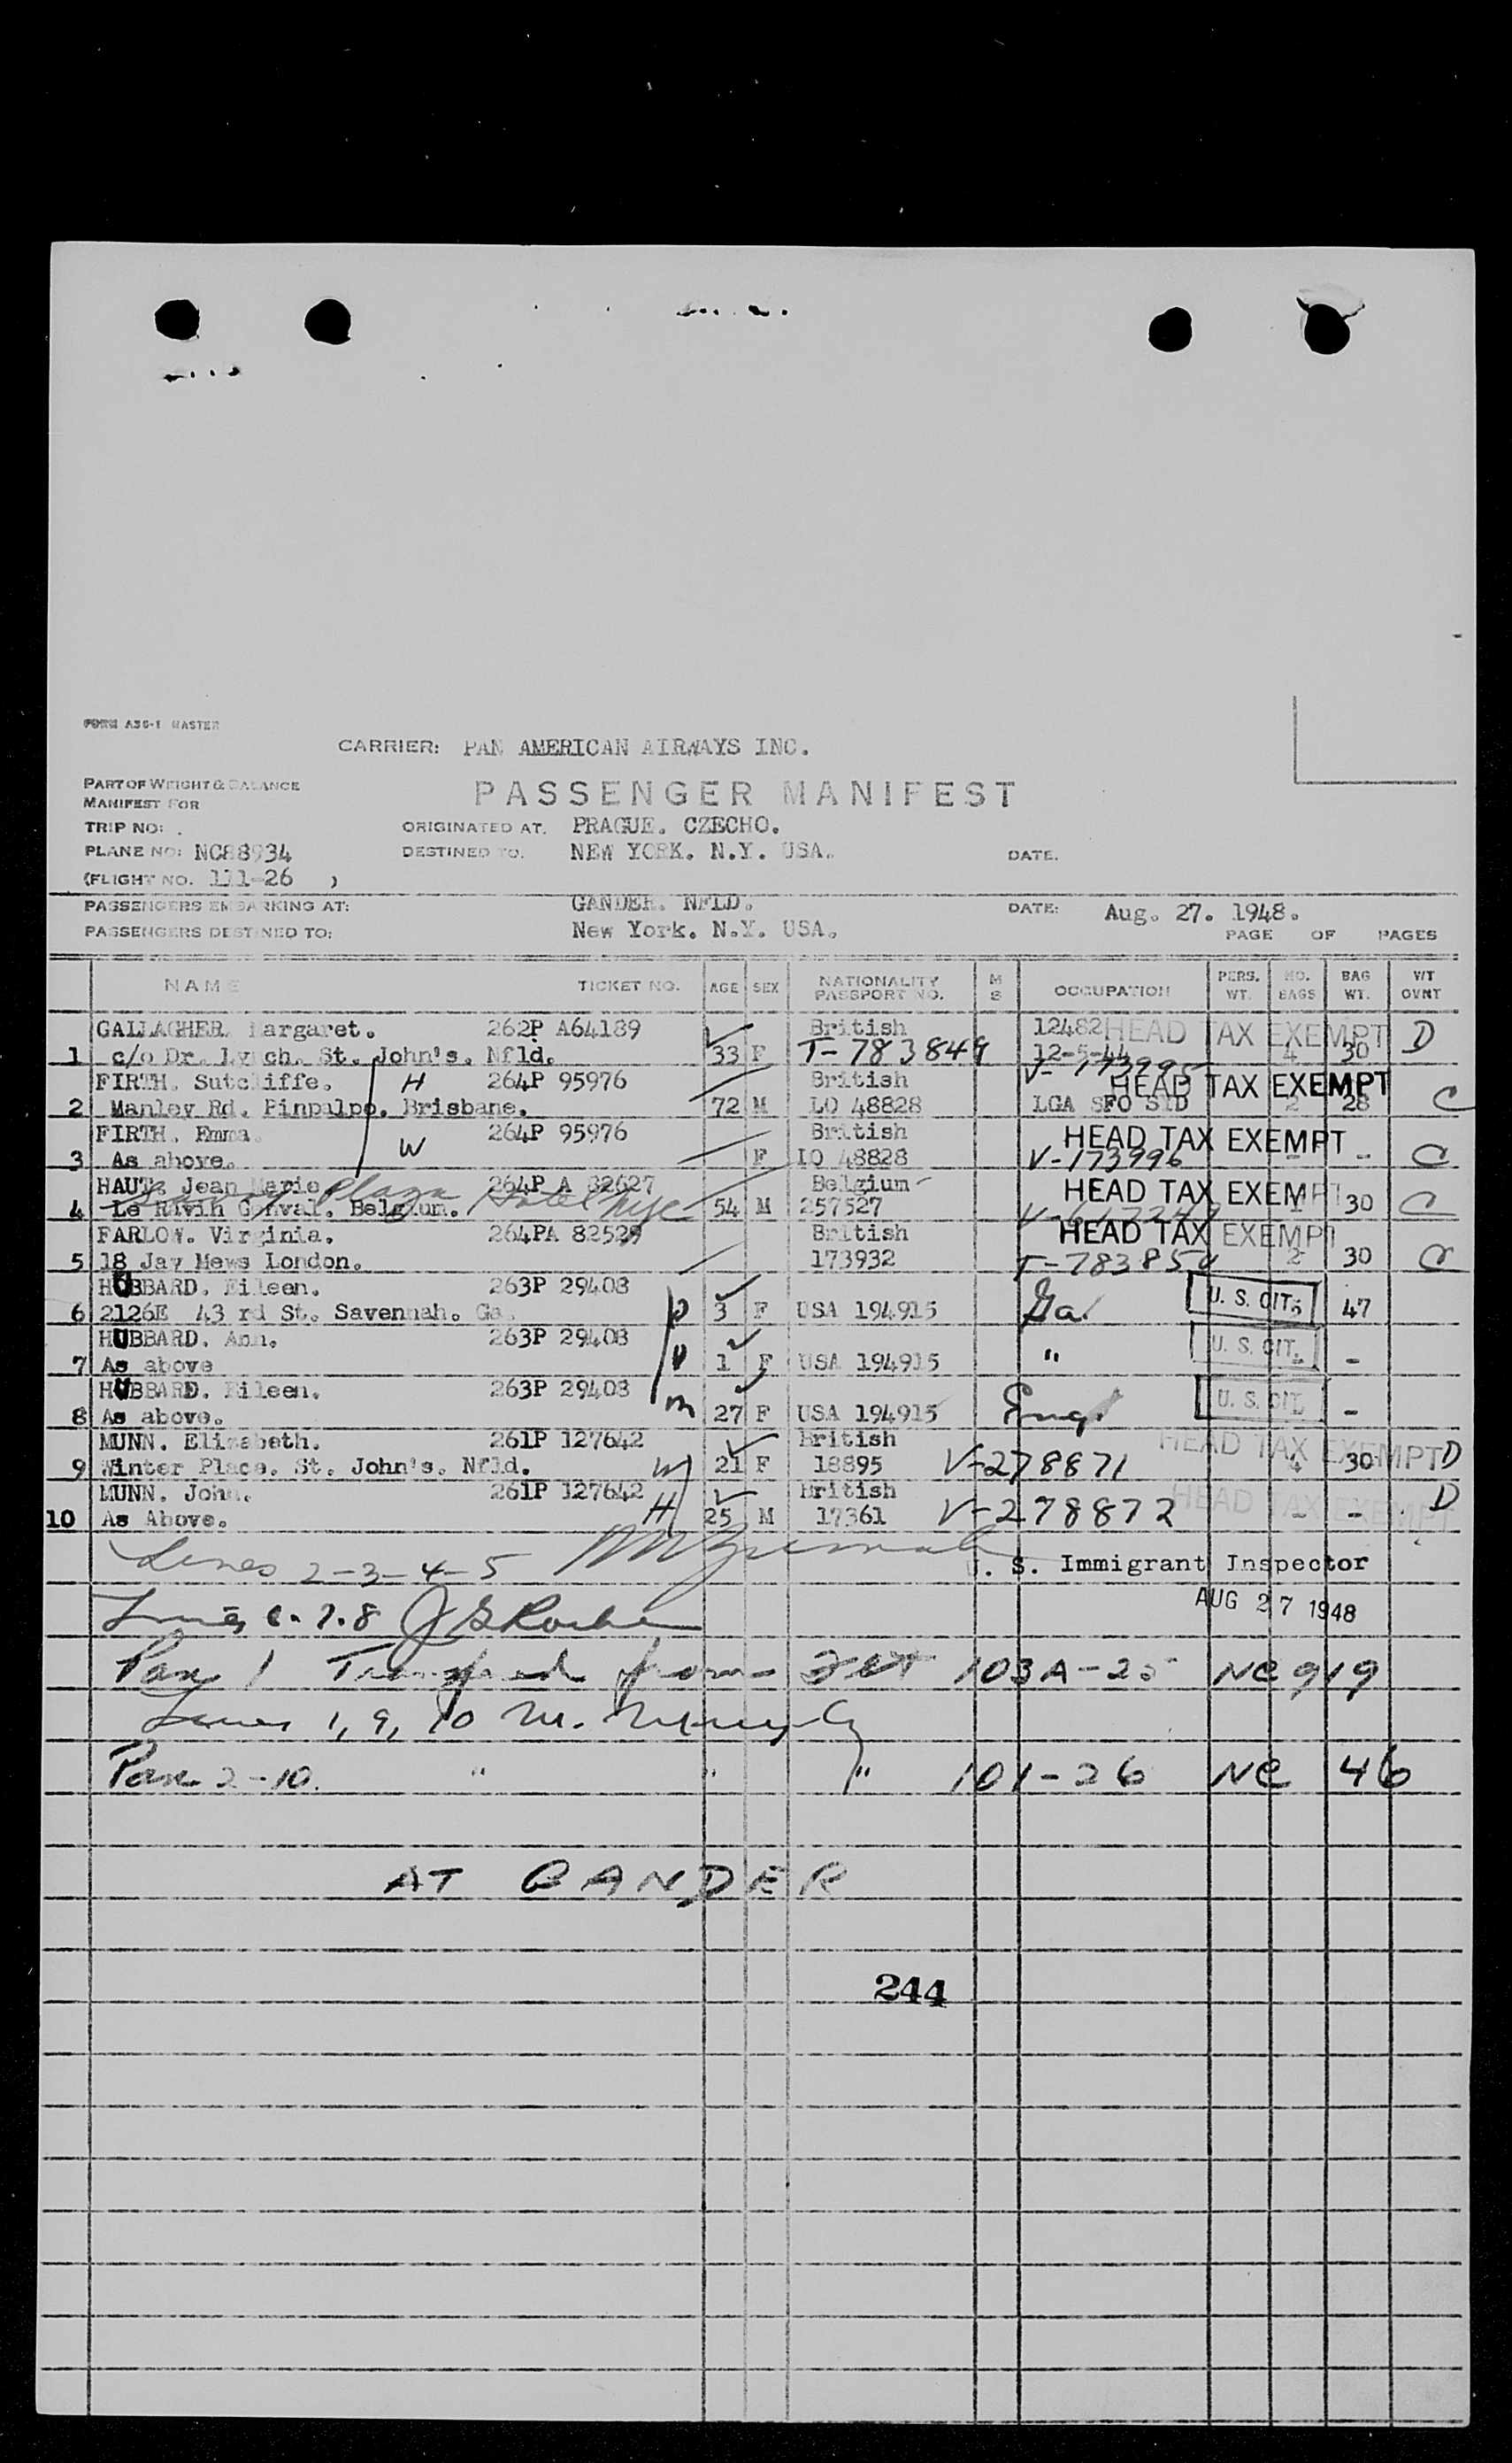 FORM A36-1 MASTER
CARRIER: PAN AMERICAN AIRWAYS INC.
PART OF WEIGHT & BALANCE
MANIFEST FOR
PASSENGER MANIFEST
TRIP NO: .
ORIGINATED AT. PRAGUE. CZECHO.
PLANE NO: NC88934
DESTINED TO. NEW YORK. N.Y. USA. DATE.
(FLIGHT NO. 111-26 )
PASSENGERS EMBARKING AT: GANDER. NFLD. DATE: Aug. 27. 1948.
PASSENGERS DESTINED TO: New York. N.Y. USA. PAGE OF PAGES
NAME TICKET NO. AGE SEX NATIONALITY PASSPORT NO. M S OCCUPATION PERS. WT. NO. BAGS BAG WT. WT OVNT
GALLAGHER. Margaret. 262P A64189 British 12482 HEAD TAX EXEMPT D
1 c/o Dr. Lynch. St. John's. Nfld. 33 F T-783849 12-5-44 4 30
FIRTH. Sutcliffe. H 264P 95976 British V-173995 HEAD TAX EXEMPT
2 Manley Rd. Pinpalpo. Brisbane. 72 M LO 48828 LGA SFO SYD 2 28 C
FIRTH. Emma. 264P 95976 British HEAD TAX EXEMPT
3 As above. W F LO 48828 V-173996 - - C
HAUT. Jean Marie 264P A 82627 Belgium HEAD TAX EXEMPT
Savoy Plaza Hotel NYC
4 Le Rivih Genval. Belgium. 54 M 257527 1 30 C
FARLOW. Virginia. 264PA 82529 British HEAD TAX EXEMPT
5 18 Jay Mews London. 173932 T-783850 2 30 C
HUBBARD. Eileen. 263P 29408 U. S. CIT.
6 2126E 43 rd St. Savennah. Ga. 3 F USA 194915 Ga. 5 47
HUBBARD. Ann. 263P 29408 U. S. CIT.
7 As above 1 F USA 194915 " - -
HUBBARD. Eileen. 263P 29408 U. S. CIT
8 As above. m 27 F USA 194915 Eng. -
MUNN. Elizabeth. 261P 127642 British HEAD TAX EXEMPT D
9 Winter Place. St. John's. Nfld. W 21 F 18895 V-278871 4 30
MUNN. John. 261P 127642 British HEAD TAX EXEMPT D
10 As Above. H 25 M 17361 V-278872 - -
Lines 2-3-4-5
U. S. Immigrant Inspector
Lines 6.7.8
AUG 27 1948
Pax 1 Transferred from 103A-25 NC 919
Lines 1, 9, 10 M.
Pax 2-10. " " " 101-26 NC 46
AT GANDER
244